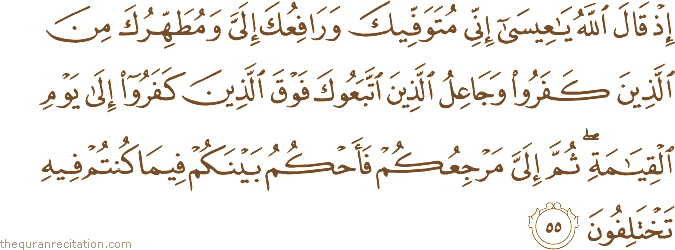 إِذْ قَالَ ٱللَّهُ يَـٰعِيسَىٰٓ إِنِّى مُتَوَفِّيكَ وَرَافِعُكَ إِلَىَّ وَمُطَهِّرُكَ مِنَ
ٱلَّذِينَ كَفَرُوا۟ وَجَاعِلُ ٱلَّذِينَ ٱتَّبَعُوكَ فَوْقَ ٱلَّذِينَ كَفَرُوٓا۟ إِلَىٰ يَوْمِ
ٱلْقِيَـٰمَةِ ۖ ثُمَّ إِلَىَّ مَرْجِعُكُمْ فَأَحْكُمُ بَيْنَكُمْ فِيمَا كُنتُمْ فِيهِ
تَخْتَلِفُونَ ٥٥
thequranrecitation.com